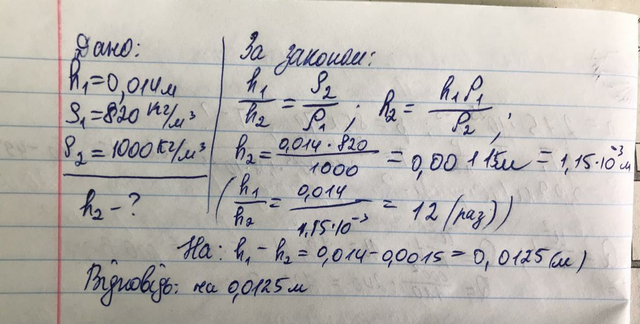 Дано:
h₁=0,014м
ρ₁=820 кг/м³
ρ₂=1000 кг/м³
h₂-?
За законом:
h₁/h₂ = ρ₂/ρ₁; h₂ = h₁ρ₁/ρ₂;
h₂ = 0,014·820/1000 = 0,00115м = 1,15·10⁻³м
(h₁/h₂ = 0,014/1,15·10⁻³ = 12 (раз))
На: h₁-h₂=0,014-0,0015=0,0125(м)
Відповідь: на 0,0125м